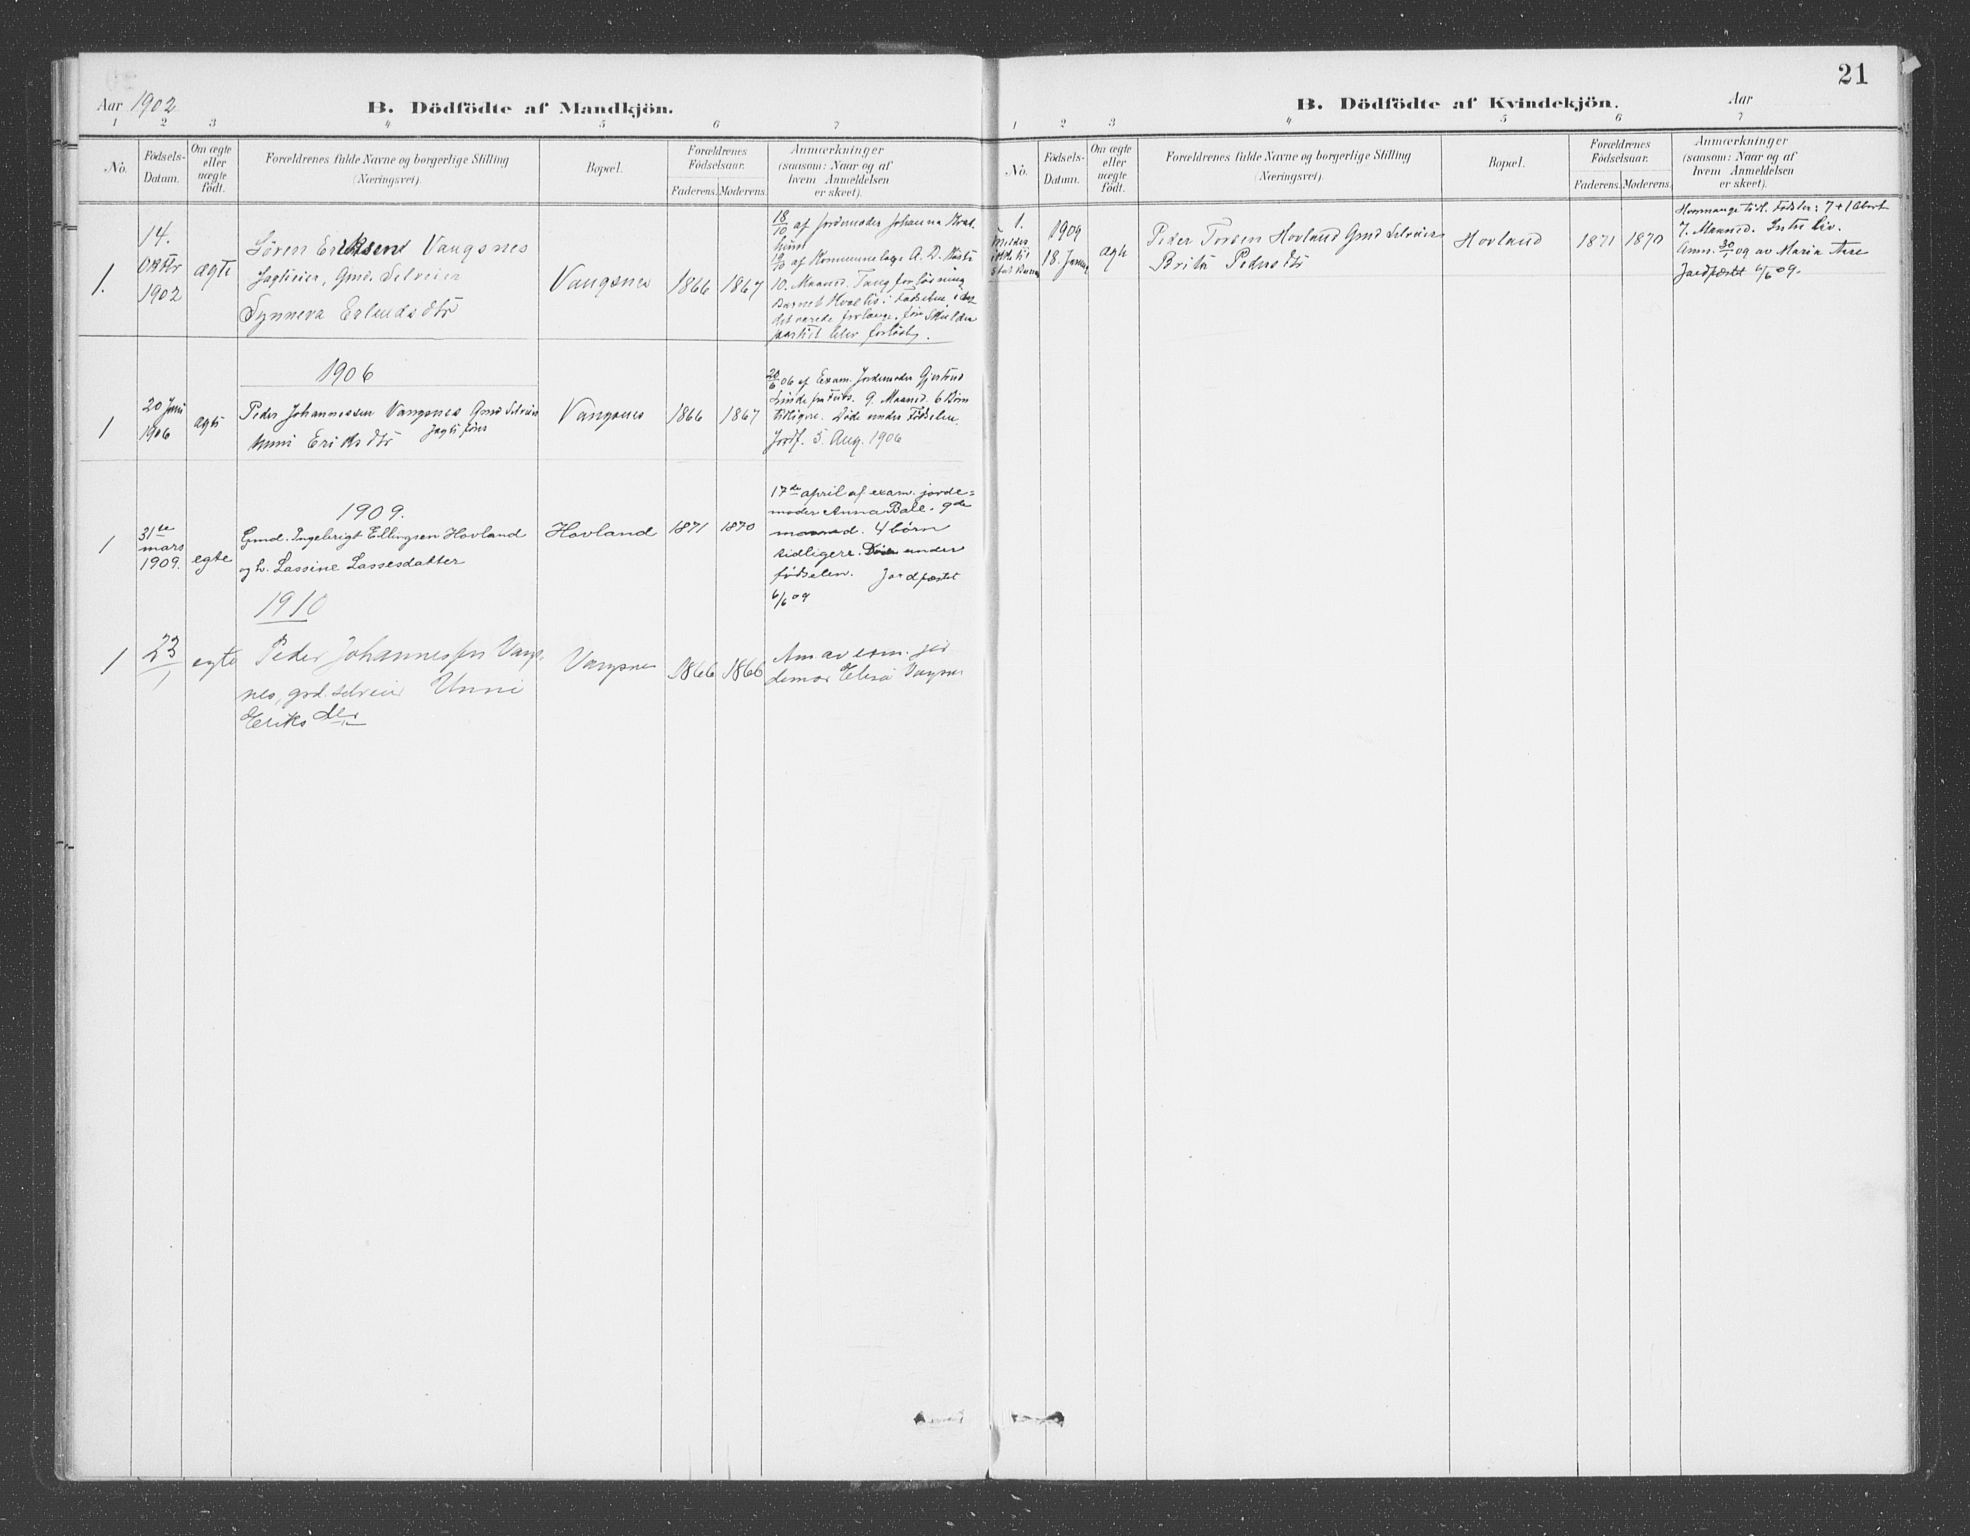 Aar 1902
B. Dödfödte af Mandkjön.
1 2 3 4 5 6 7
No.
Födsels-
Datum.
Om ægte
eller
uægte
födt.
Forældrenes fulde Navne og borgerlige Stilling
(Næringsvei).
Bopæl.
Forældrenes
Födselsaar.
Faderens. Moderens.
Anmærkninger
(saasom: Naar og af
hvem Anmeldelsen
er skeet).
1.
14.
Oktbr
1902
ægte
Søren Eriksen Vangsnes
Jagteier, Gmd. Selveier
Synneva Erlendsdtr
Vangsnes
1866
1867
18/10 af Jordemoder Johanna
19/10 af Kommunelæge A. D.
10. Maaned. Tang forløsning
Barnet
det varede forlænge, før Skulder
partiet blev forløst.
1906
1
20 Juni
1906
ægte
Peder Johannessen Vangsnes Gmd Selveier
Unni Eriksdtr Jagtfører
Vangsnes
1866
1867
06 af Exam. Jordemoder Gjertrud
Linde 9. Maaned. 6 Børn
tidligere. Døde under Fødselen.
Jordf. 5. Aug. 1906
1909.
1
31te
mars
1909.
egte
Gmd. Ingebrigt Ellingsen Hovland
og h. Lassine Lassesdatter
Hovland
1871
1870
17de april af exam. jorde=
moder Anna Bale. 9de
maaned. 4 børn
tidligere. Døde under
fødselen. Jordfæstet
6/6 09
1910
1
23/1
egte
Peder Johannessen Vangs-
nes, grd. selveier Unni
Eriksdtr
Vangsnes
1866
1866
Anm av exam. jor
demor Elisa Vangsnes
21
B. Dödfödte af Kvindekjön.
Aar
1 2 3 4 5 6 7
No.
Födsels-
Datum.
Om ægte
eller
uægte
födt.
Forældrenes fulde Navne og borgerlige Stilling
(Næringsvei).
Bopæl.
Forældrenes
Födselsaar.
Faderens. Moderens.
Anmærkninger
(saasom: Naar og af
hvem Anmeldelsen
er skeet).
1.
1909
18. Januar
ægte
Peder Torsen Hovland Gmd Selveier
Brita Pedersdtr
Hovland
1871
1870
Hvormange tidl. Fødsler: 7 + 1 Abort
7. Maaned. Intet Liv.
Anm. 30/1 09 av Maria
Jordfæstet 6/6 09.